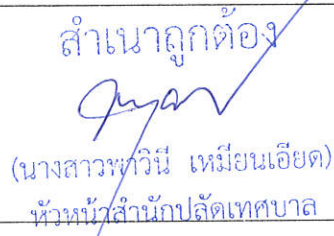 สำเนาถูกต้อง
(นางสาวพาวินี เหมียนเอียด)
หัวหน้าสำนักปลัดเทศบาล